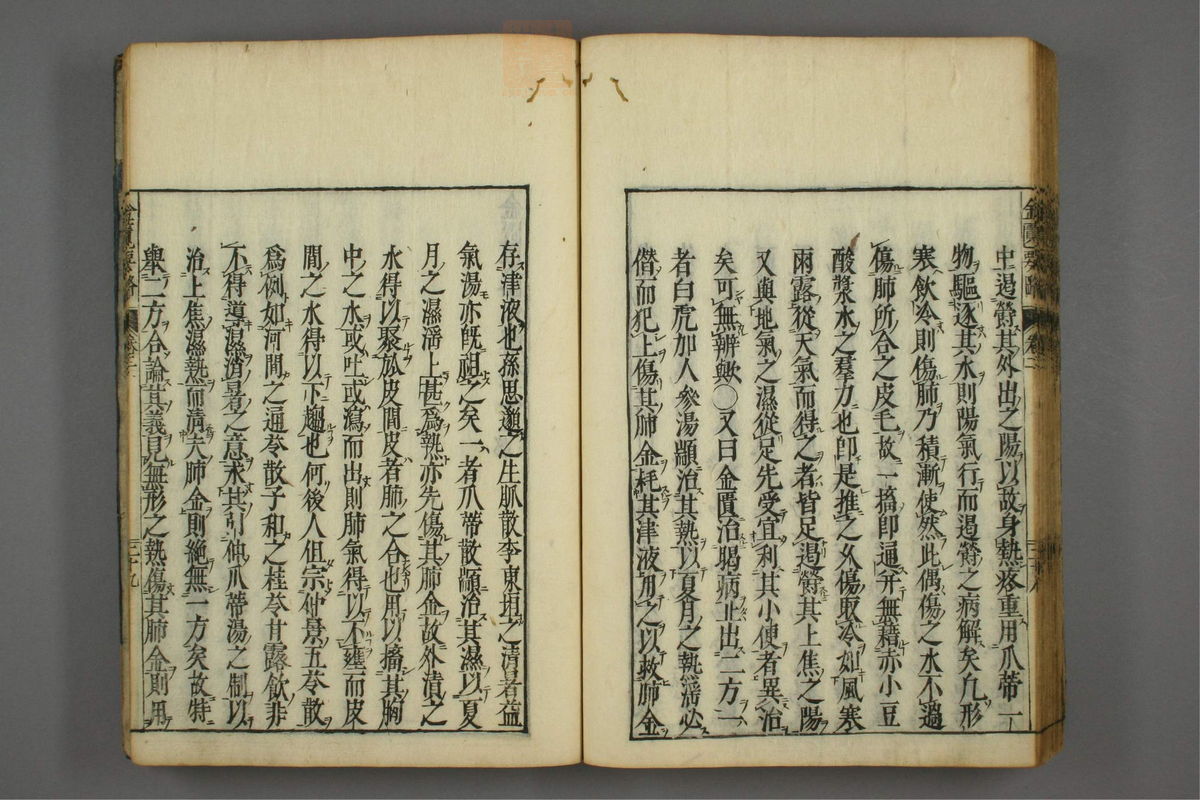 中遏鬱其外出之陽以故身熱疼重用瓜蔕一
物驅逐其水則陽氣行而遏鬱之病解矣凢形
寒飲冷則傷肺乃積漸使然此偶傷之水不過
傷肺所合之皮毛故一搐即通幷無藉赤小豆
酸漿水之羣力也即是推之久傷取冷如風寒
雨露從天氣而得之者皆足遏鬱其上焦之陽
又與地氣之濕從足先受宜利其小便者異治
矣可無辨歟○又曰金匱治暍病止出二方一
者白虎加人參湯顓治其熱以夏月之熱滛必
僭而犯上傷其肺金耗其津液用之以救肺金
存津液也孫思邈之生脉散李東垣之清暑益
氣湯亦旣祖之矣一者瓜蔕散顓治其濕以夏
月之濕滛上甚爲熱亦先傷其肺金故外漬之
水得以聚於皮間皮者肺之合也用以搐其胸
中之水或吐或瀉而出則肺氣得以不壅而皮
間之水得以下趨也何後人但宗仲景五苓散
爲例如河間之通苓散子和之桂苓甘露飮非
不得導濕濟暑之意求其引伸瓜蔕湯之制以
治上焦濕熱而淸夫肺金則絶無一方矣故特
舉二方合論其義見無形之熱傷其肺金則用
金匱要略
卷二
二十九